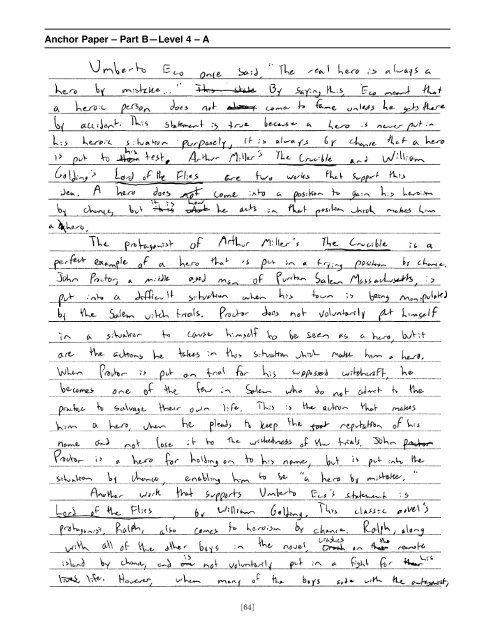 Anchor Paper – Part B—Level 4 – A
Umberto Eco once said, "The real hero is always a
hero by mistake..." This state By saying this, Eco meant that
a heroic person does not come to fame unless he gets there
by accident. This statement is true because a hero is never put in
his heroic situation purposely, it is always by chance that a hero
is put to his test. Arthur Miller's The Crucible and William
Golding's Lord of the Flies are two works that support this
idea. A hero does not come into a position to gain his heroism
by chance, but it is how he acts in that position which makes him
a hero.
The protagonist of Arthur Miller's The Crucible is a
perfect example of a hero that is put in a trying position by chance.
John Proctor, a middle aged man of Puritan Salem Massachusetts, is
put into a difficult situation when his town is being manipulated
by the Salem witch trials. Proctor does not voluntarily put himself
in a situation to cause himself to be seen as a hero, but it
are the actions he takes in this situation which make him a hero.
When Proctor is put on trial for his supposed witchcraft, he
becomes one of the few in Salem who do not admit to the
practice to salvage their own life. This is the action that makes
him a hero, when he pleads to keep the reputation of his
name and not lose it to the wickedness of the trials. John Proctor
Proctor is a hero for holding on to his name, but is put into the
situation by chance, enabling him to be "a hero by mistake."
Another work that supports Umberto Eco's statement is
Lord of the Flies by William Golding. This classic novel's
protagonist, Ralph, also comes to heroism by chance. Ralph, along
with all of the other boys in the novel, crashes on the remote
island by chance, and is not voluntarily put in a fight for his
life. However, when many of the boys side with the antagonist,
[64]